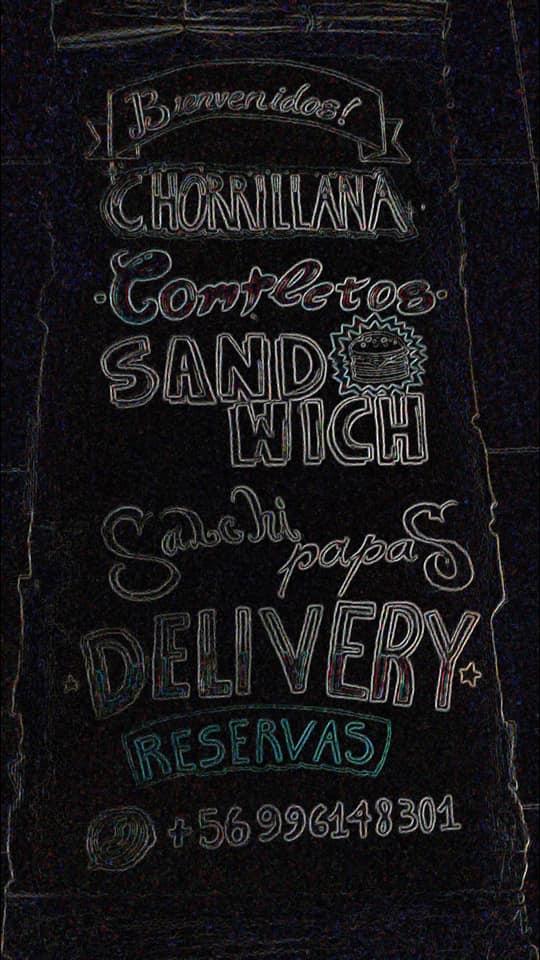 Bienvenidos!
CHORRILLANA
Completos
SAND
WICH
Salchi
papas
DELIVERY
RESERVAS
+56 996148301